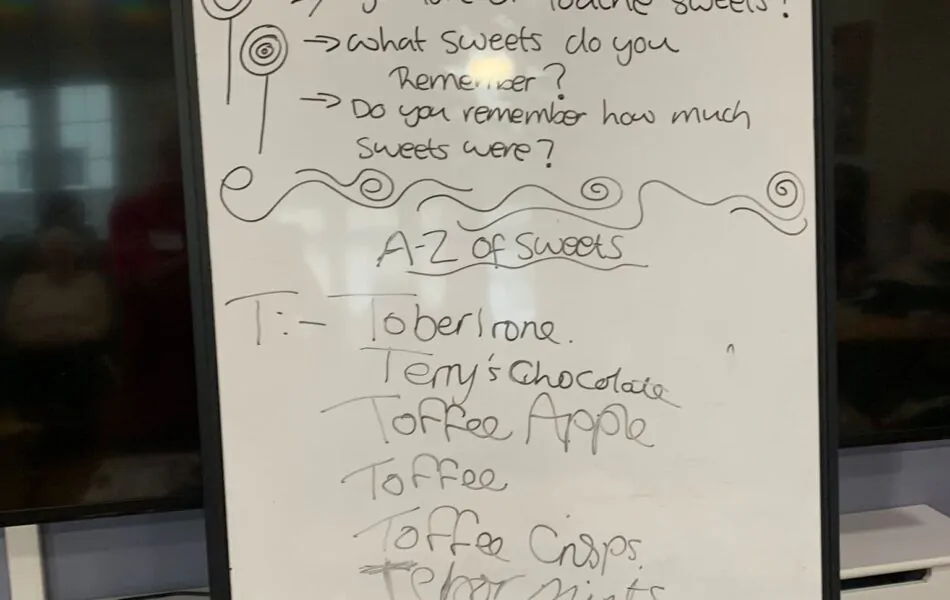 sweets?
→ What sweets do you
Remember?
→ Do you remember how much
sweets were?
A-Z of Sweets
T:- Toberlrone.
Terry's Chocolate
Toffee Apple
Toffee
Toffee Crisps.
mints